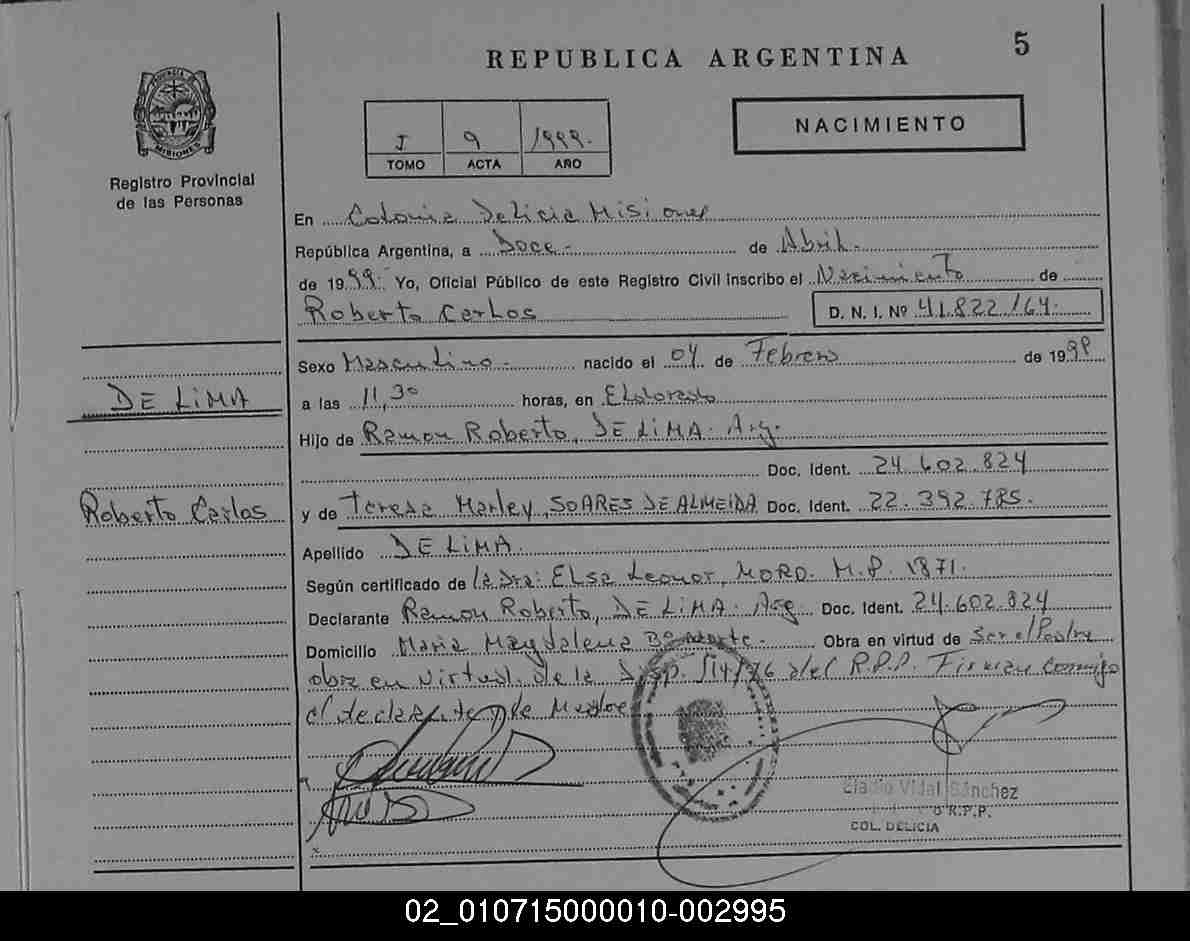 REPUBLICA ARGENTINA
5
PROVINCIA DE
MISIONES
Registro Provincial
de las Personas
I 9 1999.
TOMO ACTA AÑO
NACIMIENTO
En Colonia Delicia Misiones
República Argentina, a Doce.- de Abril.-
de 1999. Yo, Oficial Público de este Registro Civil inscribo el Nacimiento de
Roberto Carlos D. N. I. Nº 41.822.164.
Sexo Masculino.- nacido el 04 de Febrero de 1999
DE LiMA
a las 11,30 horas, en Eldorado
Hijo de Ramon Roberto, DE LiMA. Arg.
Doc. Ident. 24.602.824
Roberto Carlos
y de Teresa Marley, SOARES DE ALMEIDA Doc. Ident. 22.392.785.
Apellido DE LiMA.
Según certificado de la Dra: Elsa Leonor, MORO. M.P. 1871.
Declarante Ramon Roberto, DE LiMA. Arg. Doc. Ident. 24.602.824
Domicilio Maria Magdalena Obra en virtud de Ser el Padre
obra en virtud de la Disp. 114/76 del R.P.P. Firman Conmigo
el declarante de Madre
Eladio Vidal Sánchez
R.P.P.
COL. DELICIA
02_010715000010-002995